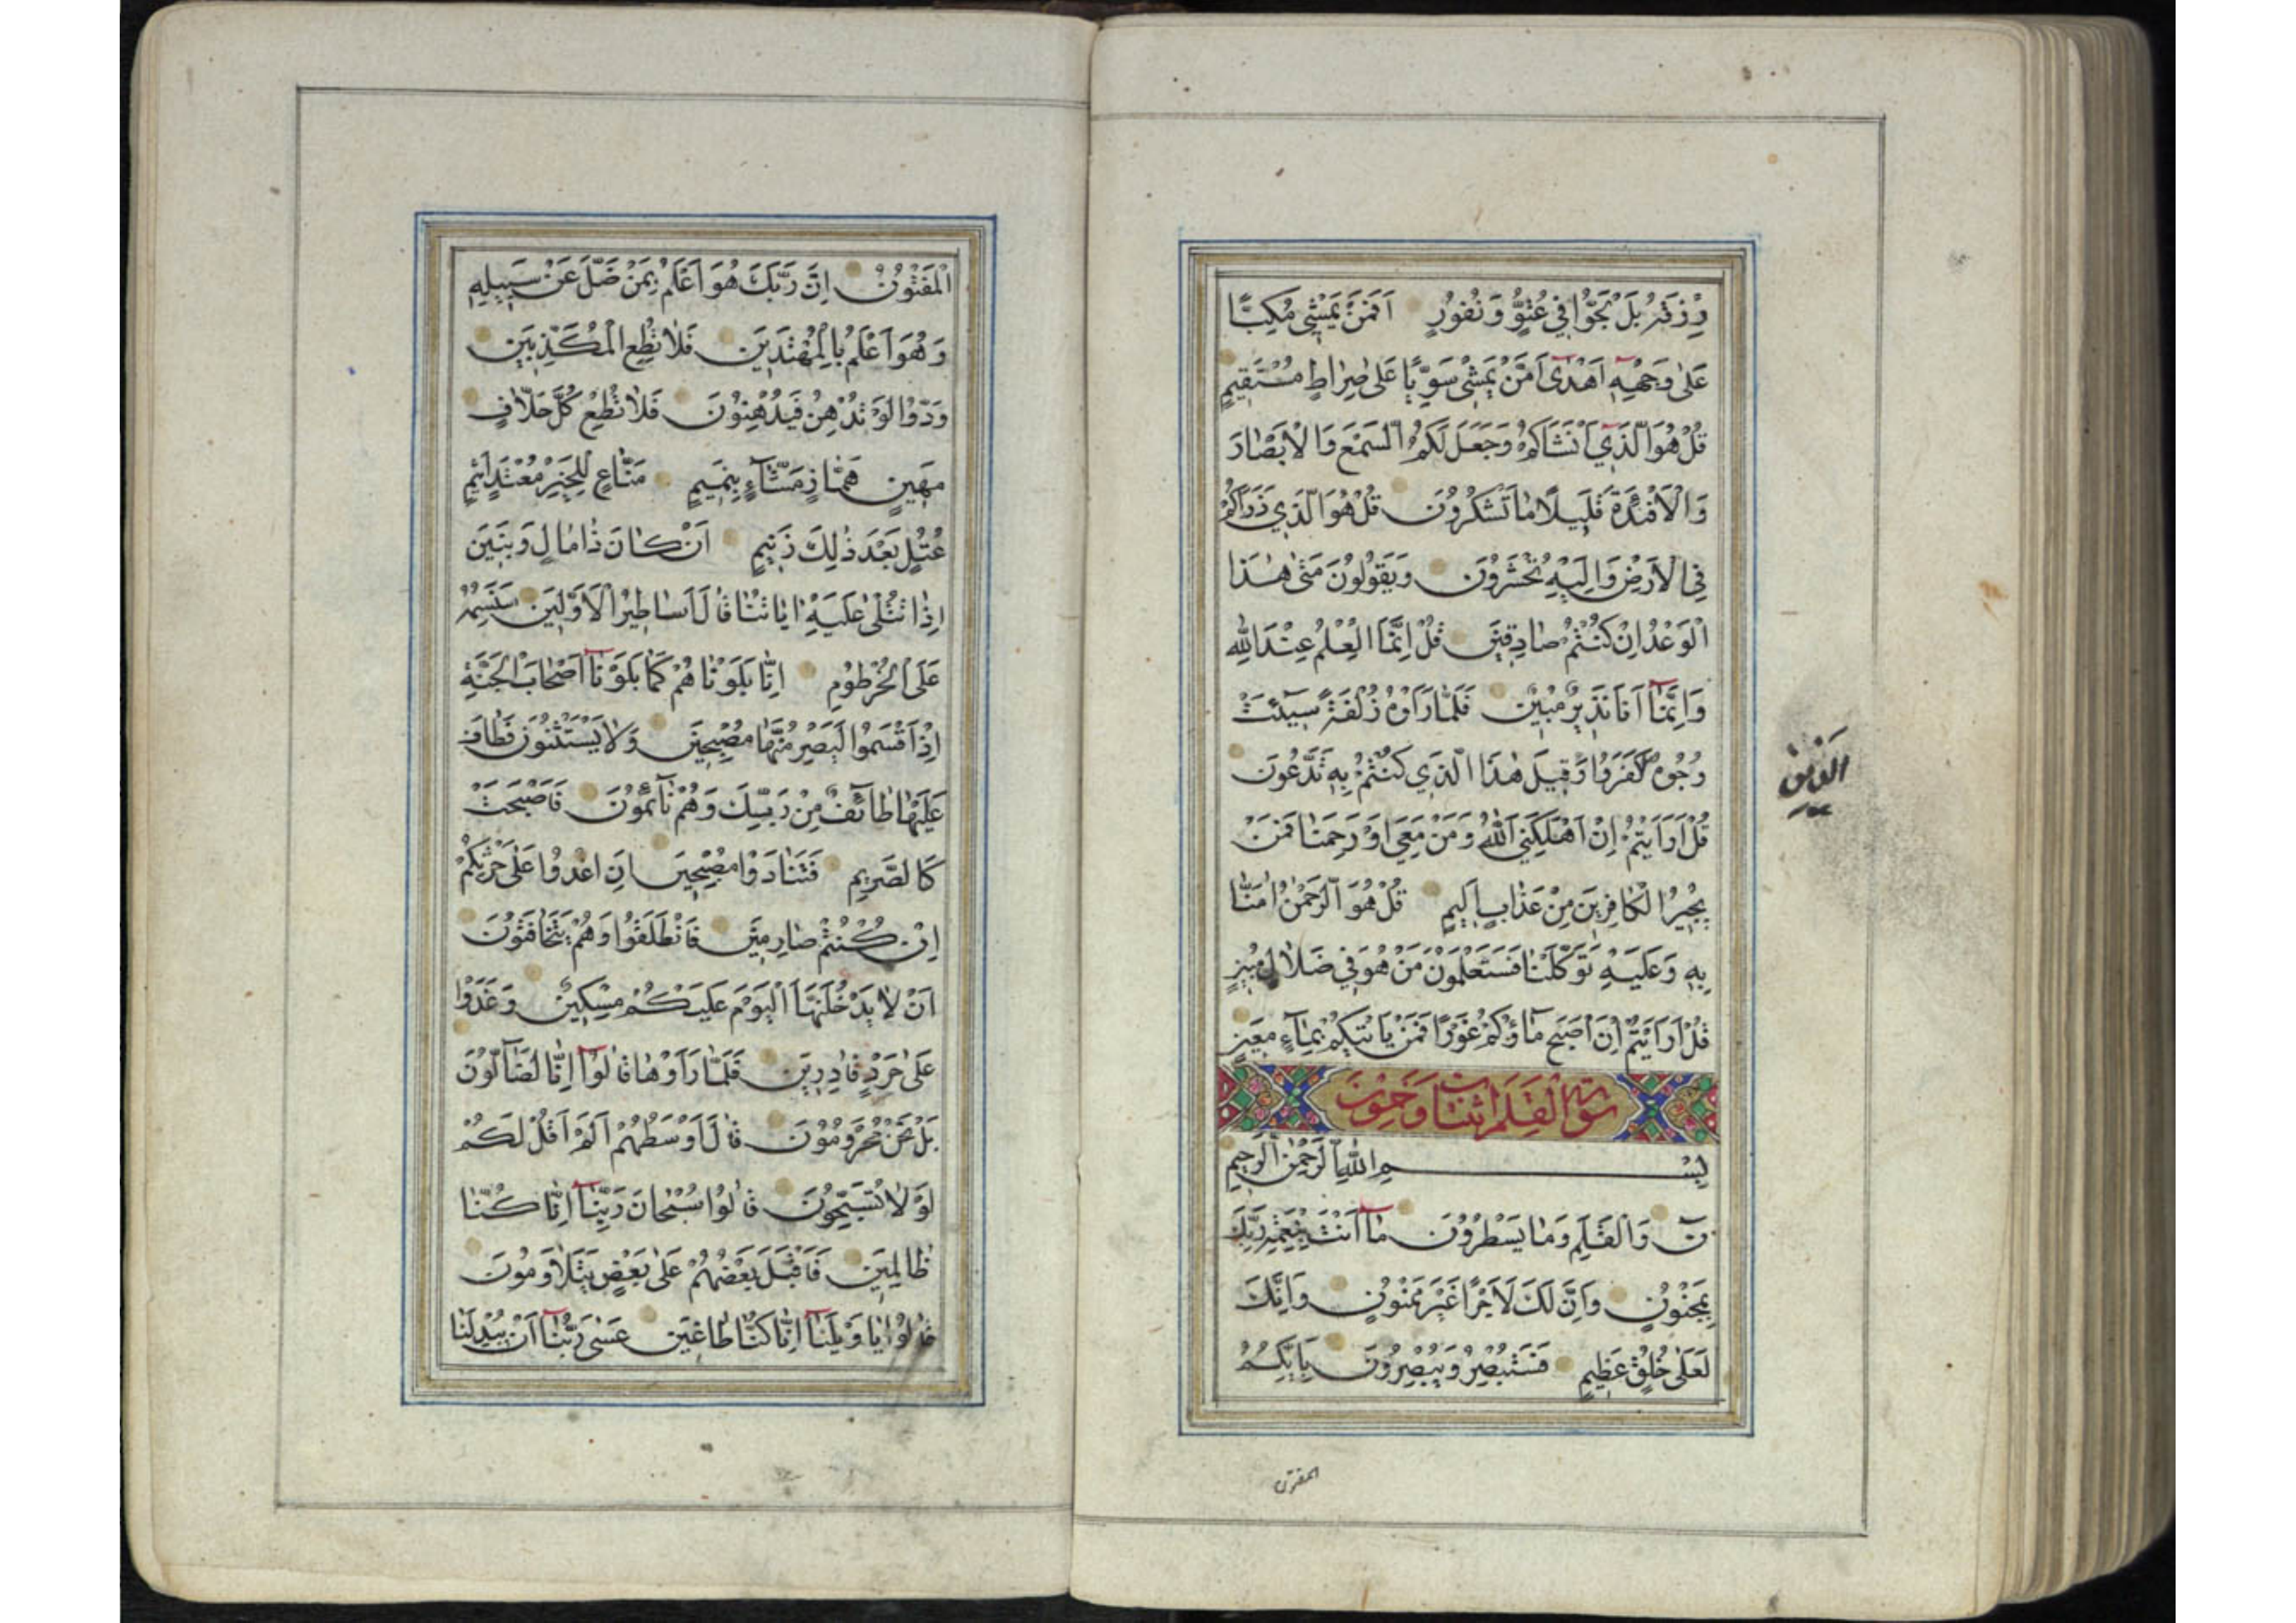 رِزْقَهُ بَلْ لَجُّوا فِي عُتُوٍّ وَنُفُورٍ اَفَمَنْ يَمْشِي مُكِبًّا
عَلٰى وَجْهِهِ اَهْدٰى اَمَّنْ يَمْشِي سَوِيًّا عَلٰى صِرَاطٍ مُسْتَقِيمٍ
قُلْ هُوَ الَّذِي اَنْشَاَكُمْ وَجَعَلَ لَكُمُ السَّمْعَ وَالْاَبْصَارَ
وَالْاَفْئِدَةَ قَلِيلًا مَا تَشْكُرُونَ قُلْ هُوَ الَّذِي ذَرَاَكُمْ
فِي الْاَرْضِ وَاِلَيْهِ تُحْشَرُونَ وَيَقُولُونَ مَتٰى هٰذَا
الْوَعْدُ اِنْ كُنْتُمْ صَادِقِينَ قُلْ اِنَّمَا الْعِلْمُ عِنْدَ اللّٰهِ
وَاِنَّمَآ اَنَا نَذِيرٌ مُبِينٌ فَلَمَّا رَاَوْهُ زُلْفَةً سِيٓئَتْ
وُجُوهُ الَّذِينَ كَفَرُوا وَقِيلَ هٰذَا الَّذِي كُنْتُمْ بِهِ تَدَّعُونَ
قُلْ اَرَاَيْتُمْ اِنْ اَهْلَكَنِيَ اللّٰهُ وَمَنْ مَعِيَ اَوْ رَحِمَنَا فَمَنْ
يُجِيرُ الْكَافِرِينَ مِنْ عَذَابٍ اَلِيمٍ قُلْ هُوَ الرَّحْمٰنُ اٰمَنَّا
بِهِ وَعَلَيْهِ تَوَكَّلْنَا فَسَتَعْلَمُونَ مَنْ هُوَ فِي ضَلَالٍ مُبِينٍ
قُلْ اَرَاَيْتُمْ اِنْ اَصْبَحَ مَآؤُكُمْ غَوْرًا فَمَنْ يَاْتِيكُمْ بِمَآءٍ مَعِينٍ
سورة القلم اثنتان وخمسون
بِسْمِ اللّٰهِ الرَّحْمٰنِ الرَّحِيمِ
نٓ وَالْقَلَمِ وَمَا يَسْطُرُونَ مَآ اَنْتَ بِنِعْمَةِ رَبِّكَ
بِمَجْنُونٍ وَاِنَّ لَكَ لَاَجْرًا غَيْرَ مَمْنُونٍ وَاِنَّكَ
لَعَلٰى خُلُقٍ عَظِيمٍ فَسَتُبْصِرُ وَيُبْصِرُونَ بِاَيِّكُمُ
المفتون
الْمَفْتُونُ اِنَّ رَبَّكَ هُوَ اَعْلَمُ بِمَنْ ضَلَّ عَنْ سَبِيلِهِ
وَهُوَ اَعْلَمُ بِالْمُهْتَدِينَ فَلَا تُطِعِ الْمُكَذِّبِينَ
وَدُّوا لَوْ تُدْهِنُ فَيُدْهِنُونَ فَلَا تُطِعْ كُلَّ حَلَّافٍ
مَهِينٍ هَمَّازٍ مَشَّآءٍ بِنَمِيمٍ مَنَّاعٍ لِلْخَيْرِ مُعْتَدٍ اَثِيمٍ
عُتُلٍّ بَعْدَ ذٰلِكَ زَنِيمٍ اَنْ كَانَ ذَا مَالٍ وَبَنِينَ
اِذَا تُتْلٰى عَلَيْهِ اٰيَاتُنَا قَالَ اَسَاطِيرُ الْاَوَّلِينَ سَنَسِمُهُ
عَلَى الْخُرْطُومِ اِنَّا بَلَوْنَاهُمْ كَمَا بَلَوْنَآ اَصْحَابَ الْجَنَّةِ
اِذْ اَقْسَمُوا لَيَصْرِمُنَّهَا مُصْبِحِينَ وَلَا يَسْتَثْنُونَ فَطَافَ
عَلَيْهَا طَآئِفٌ مِنْ رَبِّكَ وَهُمْ نَآئِمُونَ فَاَصْبَحَتْ
كَالصَّرِيمِ فَتَنَادَوْا مُصْبِحِينَ اَنِ اغْدُوا عَلٰى حَرْثِكُمْ
اِنْ كُنْتُمْ صَارِمِينَ فَانْطَلَقُوا وَهُمْ يَتَخَافَتُونَ
اَنْ لَا يَدْخُلَنَّهَا الْيَوْمَ عَلَيْكُمْ مِسْكِينٌ وَغَدَوْا
عَلٰى حَرْدٍ قَادِرِينَ فَلَمَّا رَاَوْهَا قَالُوٓا اِنَّا لَضَآلُّونَ
بَلْ نَحْنُ مَحْرُومُونَ قَالَ اَوْسَطُهُمْ اَلَمْ اَقُلْ لَكُمْ
لَوْلَا تُسَبِّحُونَ قَالُوا سُبْحَانَ رَبِّنَآ اِنَّا كُنَّا
ظَالِمِينَ فَاَقْبَلَ بَعْضُهُمْ عَلٰى بَعْضٍ يَتَلَاوَمُونَ
قَالُوا يَا وَيْلَنَآ اِنَّا كُنَّا طَاغِينَ عَسٰى رَبُّنَآ اَنْ يُبْدِلَنَا